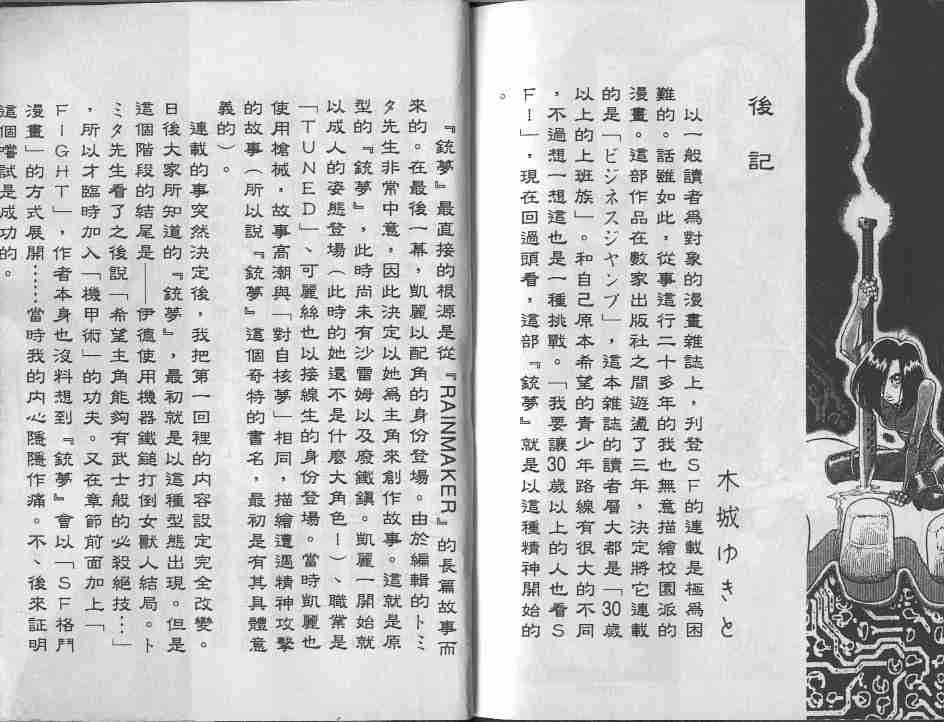 後記
木城ゆきと
以一般讀者爲對象的漫畫雜誌上，刊登ＳＦ的連載是極爲困
難的。話雖如此，從事這行二十多年的我也無意描繪校園派的
漫畫。這部作品在數家出版社之間遊盪了三年，決定將它連載
的是「ビジネスジャンプ」，這本雜誌的讀者層大都是「30歲
以上的上班族」。和自己原本希望的青少年路線有很大的不同
，不過想一想這也是一種挑戰。「我要讓30歲以上的人也看Ｓ
Ｆ！」，現在回過頭看，這部『銃夢』就是以這種精神開始的
。
『銃夢』最直接的根源是從『RAINMAKER』的長篇故事而
來的。在最後一幕，凱麗以配角的身份登場。由於編輯的トミ
タ先生非常中意，因此決定以她爲主角來創作故事。這就是原
型的『銃夢』，此時尚未有沙雷姆以及廢鐵鎮。凱麗一開始就
以成人的姿態登場（此時的她還不是什麼大角色！）、職業是
「ＴＵＮＥＤ」、可麗絲也以接線生的身份登場。當時凱麗也
使用槍械，故事高潮與「對自核夢」相同，描繪遭遇精神攻擊
的故事（所以說『銃夢』這個奇特的書名，最初是有其具體意
義的）。
連載的事突然決定後，我把第一回裡的內容設定完全改變。
日後大家所知道的『銃夢』，最初就是以這種型態出現。但是
這個階段的結尾是——伊德使用機器鐵鎚打倒女獸人結局。ト
ミタ先生看了之後說「希望主角能夠有武士般的必殺絕技…」
，所以才臨時加入「機甲術」的功夫。又在章節前面加上「
ＦＩＧＨＴ」，作者本身也沒料想到『銃夢』會以「ＳＦ格鬥
漫畫」的方式展開……當時我的內心隱隱作痛。不、後來証明
這個嚐試是成功的。